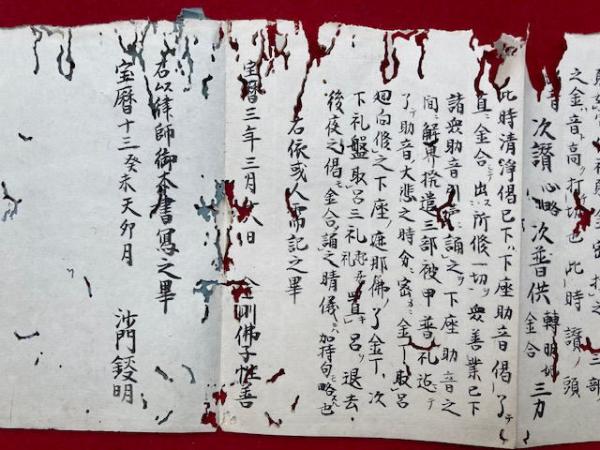 之金音高ク打切也此時讃ノ頭
音次讃心略次普供轉明 金合三力
此時清浄偈已下ハ下座助音偈了テ
直ニ金合出ス所修一切ノ衆善業已下
諸衆助音引 誦之下座助音之
間ニ解界撥遣三部被甲普礼迄テ
了テ助音大悲之時分ニ密ニ金丁取呂
廻向修之下座ノ 那佛ノ了金丁次
下礼盤取呂三礼 置呂退去
後夜之偈ニ金合誦之晴儀ニ加持句略也
右依或人需記之畢
宝暦三年三月 八日 金剛佛子性善
右以律師御本書寫之畢
宝暦十三癸未天卯月 沙門 明